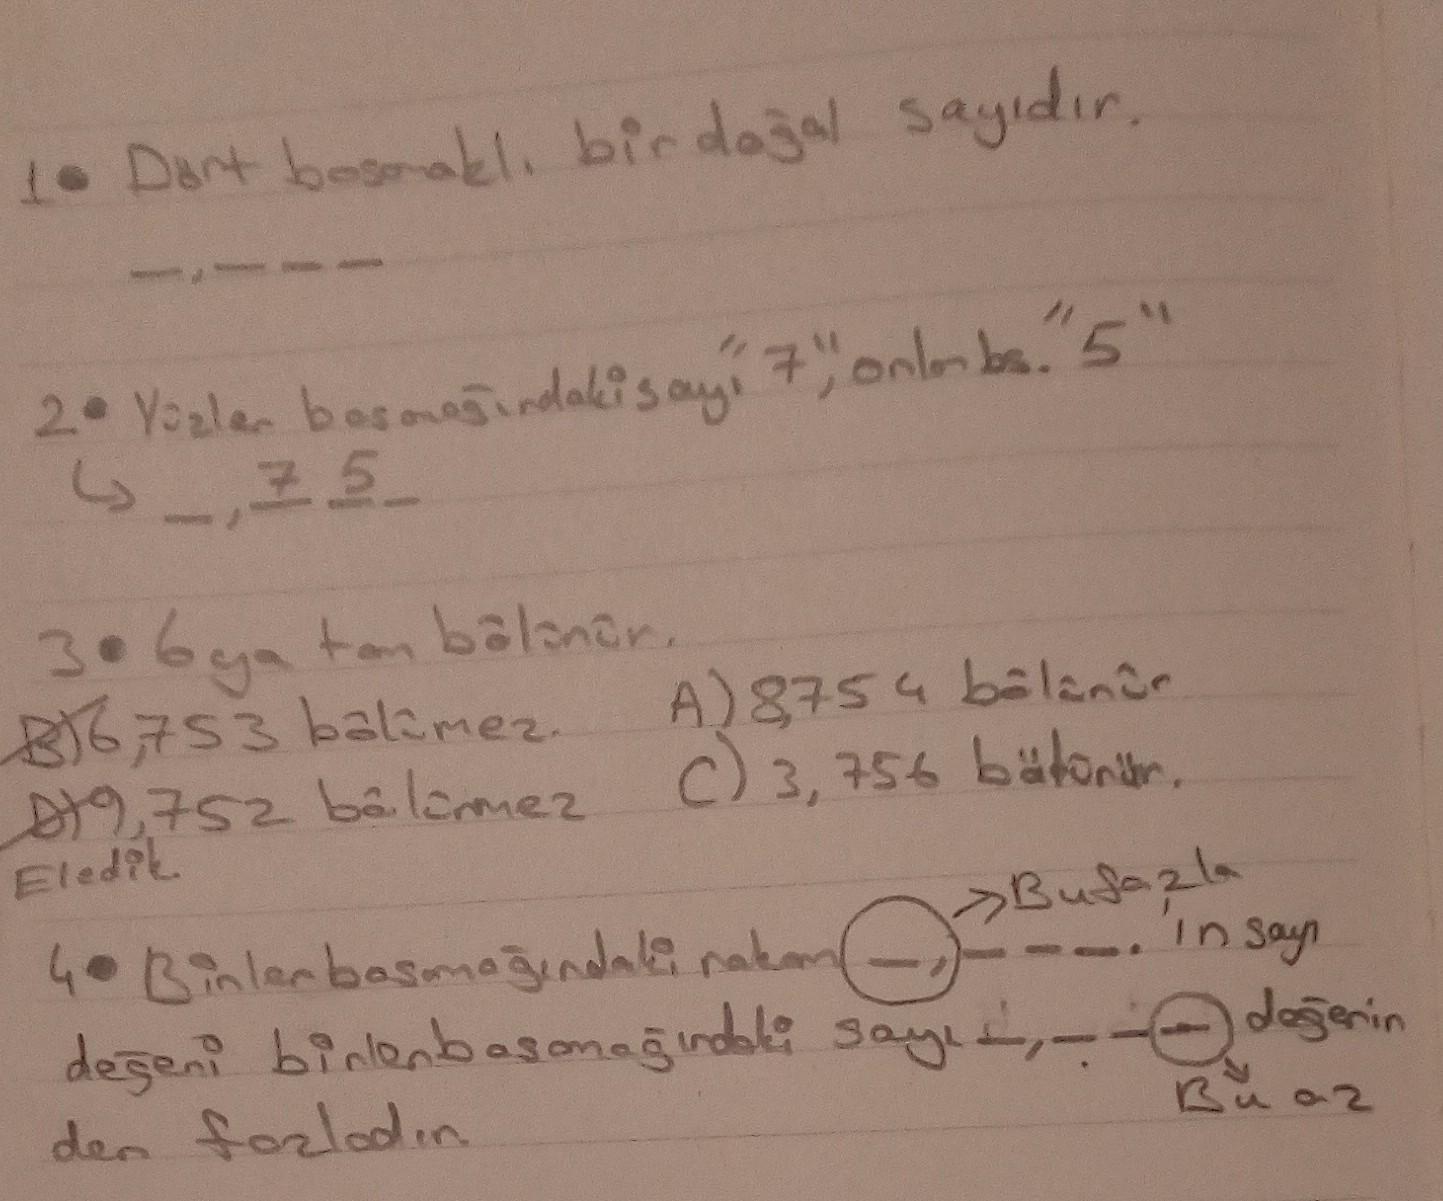 1• Dört basamaklı bir doğal sayıdır.
_,_ _ _
2• Yüzler basamağındaki sayı "7", onlar bs. "5"
↳ _,7 5 _
3• 6 ya tam bölünür.
B) 6,753 bölümez. A) 8,754 bölünür
D) 9,752 bölünmez C) 3,756 bölünür.
Eledik.
4• Binler basamağındaki rakam _,_ _ _. 'in sayı → Bu fazla
değeni birler basamağındaki sayı _,_ _ _ değerin
den fazladır → Bu az